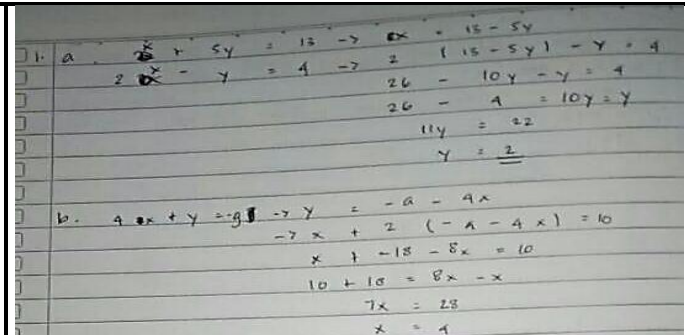 1. a. x + 5y = 13 -> x = 13 - 5y
2x - y = 4 -> 2 (13 - 5y) - y = 4
26 - 10y - y = 4
26 - 4 = 10y = y
11y = 22
y = 2
b. 4x + y = -9 -> y = -9 - 4x
-> x + 2 (-9 - 4x) = 10
x + -18 - 8x = 10
10 + 18 = 8x - x
7x = 28
x = 4